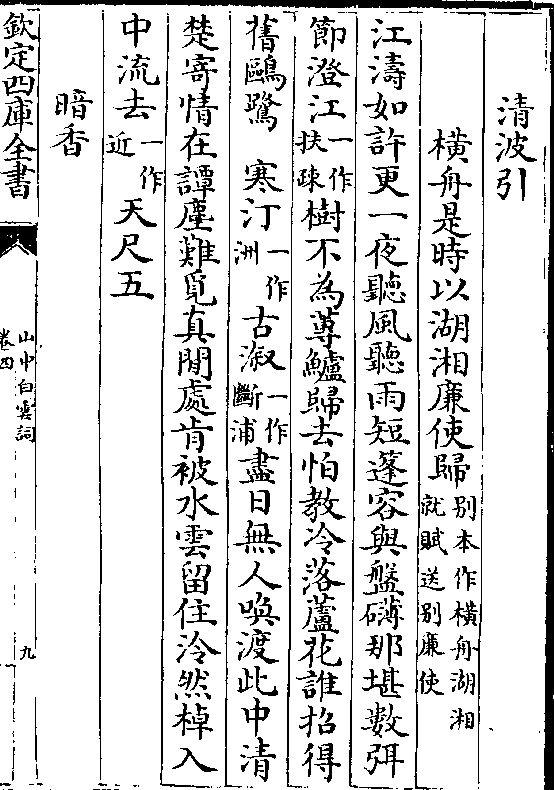 清波引
横舟是時以湖湘廉使歸別本作横舟湖湘就賦送別廉使
江濤如許更一夜聽風聽雨短蓬容與盤礴那堪數弭
節澄江一作扶疎樹不為蓴鱸歸去怕教冷落蘆花誰招得
舊鷗鷺　寒汀一作洲古溆一作斷浦盡日無人喚渡此中清
楚寄情在譚塵難覓真閒處肯被水雲留住泠然棹入
中流去一作近天尺五
暗香
欽定四庫全書
山中白雲詞
卷四
九